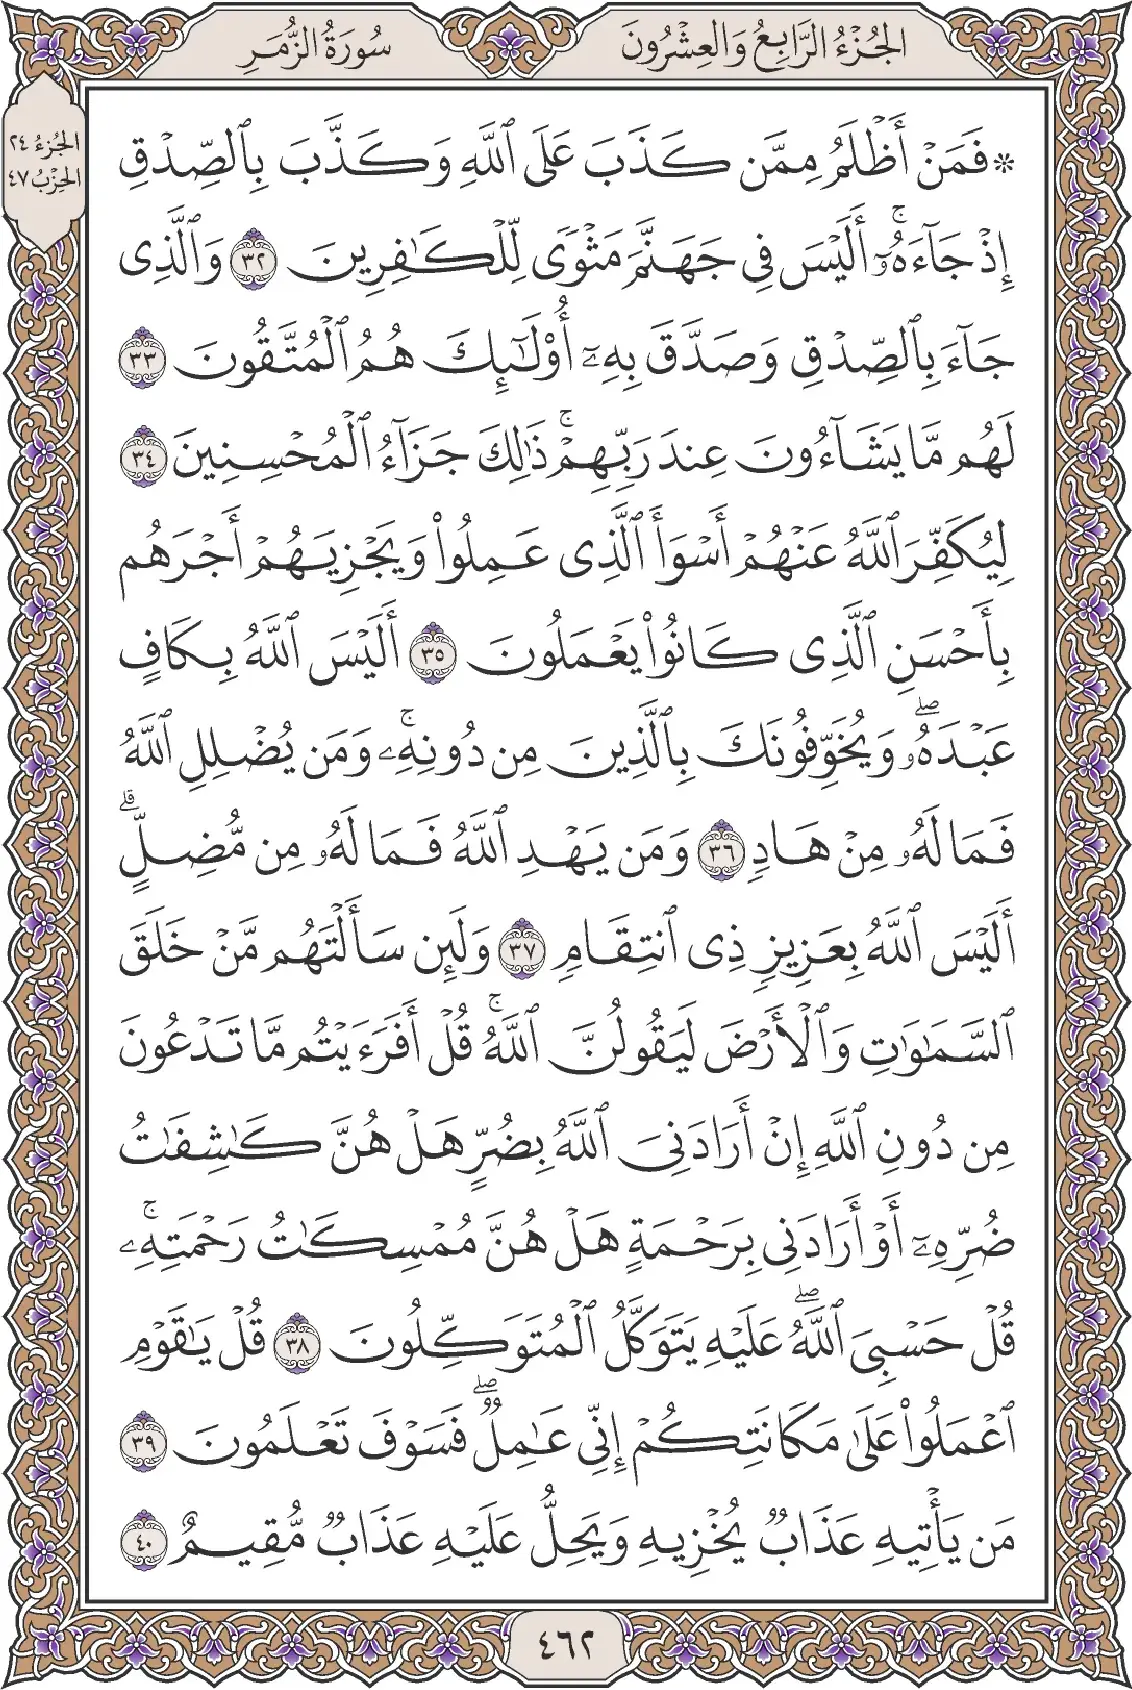 الجُزْءُ الرَّابِعُ وَالعِشْرُونَ
سُورَةُ الزُّمَرِ
الجُزْءُ ٢٤
الحِزْبُ ٤٧
۞ فَمَنْ أَظْلَمُ مِمَّن كَذَبَ عَلَى ٱللَّهِ وَكَذَّبَ بِٱلصِّدْقِ
إِذْ جَآءَهُۥٓۚ أَلَيْسَ فِى جَهَنَّمَ مَثْوًى لِّلْكَـٰفِرِينَ ٣٢ وَٱلَّذِى
جَآءَ بِٱلصِّدْقِ وَصَدَّقَ بِهِۦٓ أُو۟لَـٰٓئِكَ هُمُ ٱلْمُتَّقُونَ ٣٣
لَهُم مَّا يَشَآءُونَ عِندَ رَبِّهِمْۚ ذَٰلِكَ جَزَآءُ ٱلْمُحْسِنِينَ ٣٤
لِيُكَفِّرَ ٱللَّهُ عَنْهُمْ أَسْوَأَ ٱلَّذِى عَمِلُوا۟ وَيَجْزِيَهُمْ أَجْرَهُم
بِأَحْسَنِ ٱلَّذِى كَانُوا۟ يَعْمَلُونَ ٣٥ أَلَيْسَ ٱللَّهُ بِكَافٍ
عَبْدَهُۥۖ وَيُخَوِّفُونَكَ بِٱلَّذِينَ مِن دُونِهِۦۚ وَمَن يُضْلِلِ ٱللَّهُ
فَمَا لَهُۥ مِنْ هَادٍ ٣٦ وَمَن يَهْدِ ٱللَّهُ فَمَا لَهُۥ مِن مُّضِلٍّۗ
أَلَيْسَ ٱللَّهُ بِعَزِيزٍ ذِى ٱنتِقَامٍ ٣٧ وَلَئِن سَأَلْتَهُم مَّنْ خَلَقَ
ٱلسَّمَـٰوَٰتِ وَٱلْأَرْضَ لَيَقُولُنَّ ٱللَّهُۚ قُلْ أَفَرَءَيْتُم مَّا تَدْعُونَ
مِن دُونِ ٱللَّهِ إِنْ أَرَادَنِىَ ٱللَّهُ بِضُرٍّ هَلْ هُنَّ كَـٰشِفَـٰتُ
ضُرِّهِۦٓ أَوْ أَرَادَنِى بِرَحْمَةٍ هَلْ هُنَّ مُمْسِكَـٰتُ رَحْمَتِهِۦۚ
قُلْ حَسْبِىَ ٱللَّهُۖ عَلَيْهِ يَتَوَكَّلُ ٱلْمُتَوَكِّلُونَ ٣٨ قُلْ يَـٰقَوْمِ
ٱعْمَلُوا۟ عَلَىٰ مَكَانَتِكُمْ إِنِّى عَـٰمِلٌۖ فَسَوْفَ تَعْلَمُونَ ٣٩
مَن يَأْتِيهِ عَذَابٌ يُخْزِيهِ وَيَحِلُّ عَلَيْهِ عَذَابٌ مُّقِيمٌ ٤٠
٤٦٢